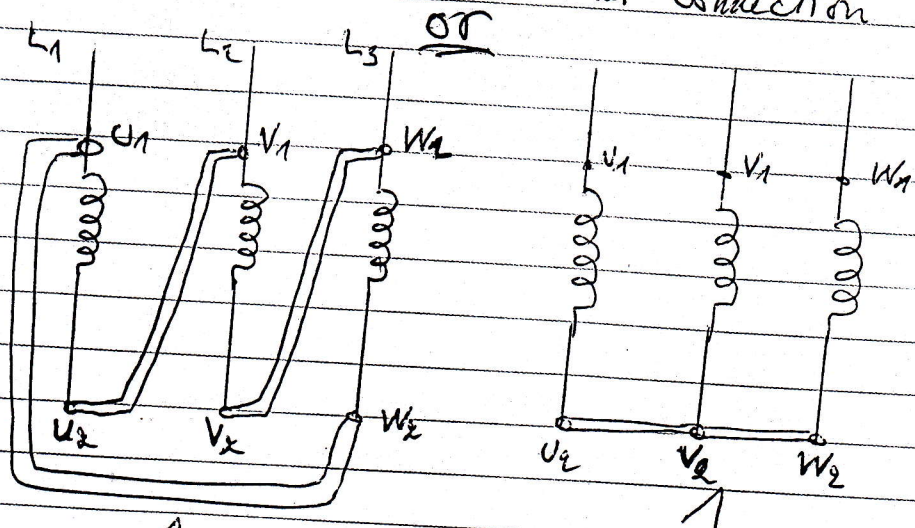 Connection
or
L1 L2 L3
U1 V1 W1 U1 V1 W1
U2 V2 W2 U2 V2 W2